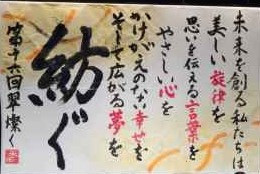 未来を創る私たちは
美しい旋律を
思いを伝える言葉を
やさしい心を
かけがえのない幸せを
そして広がる夢を
紡ぐ
第十六回翠燦く